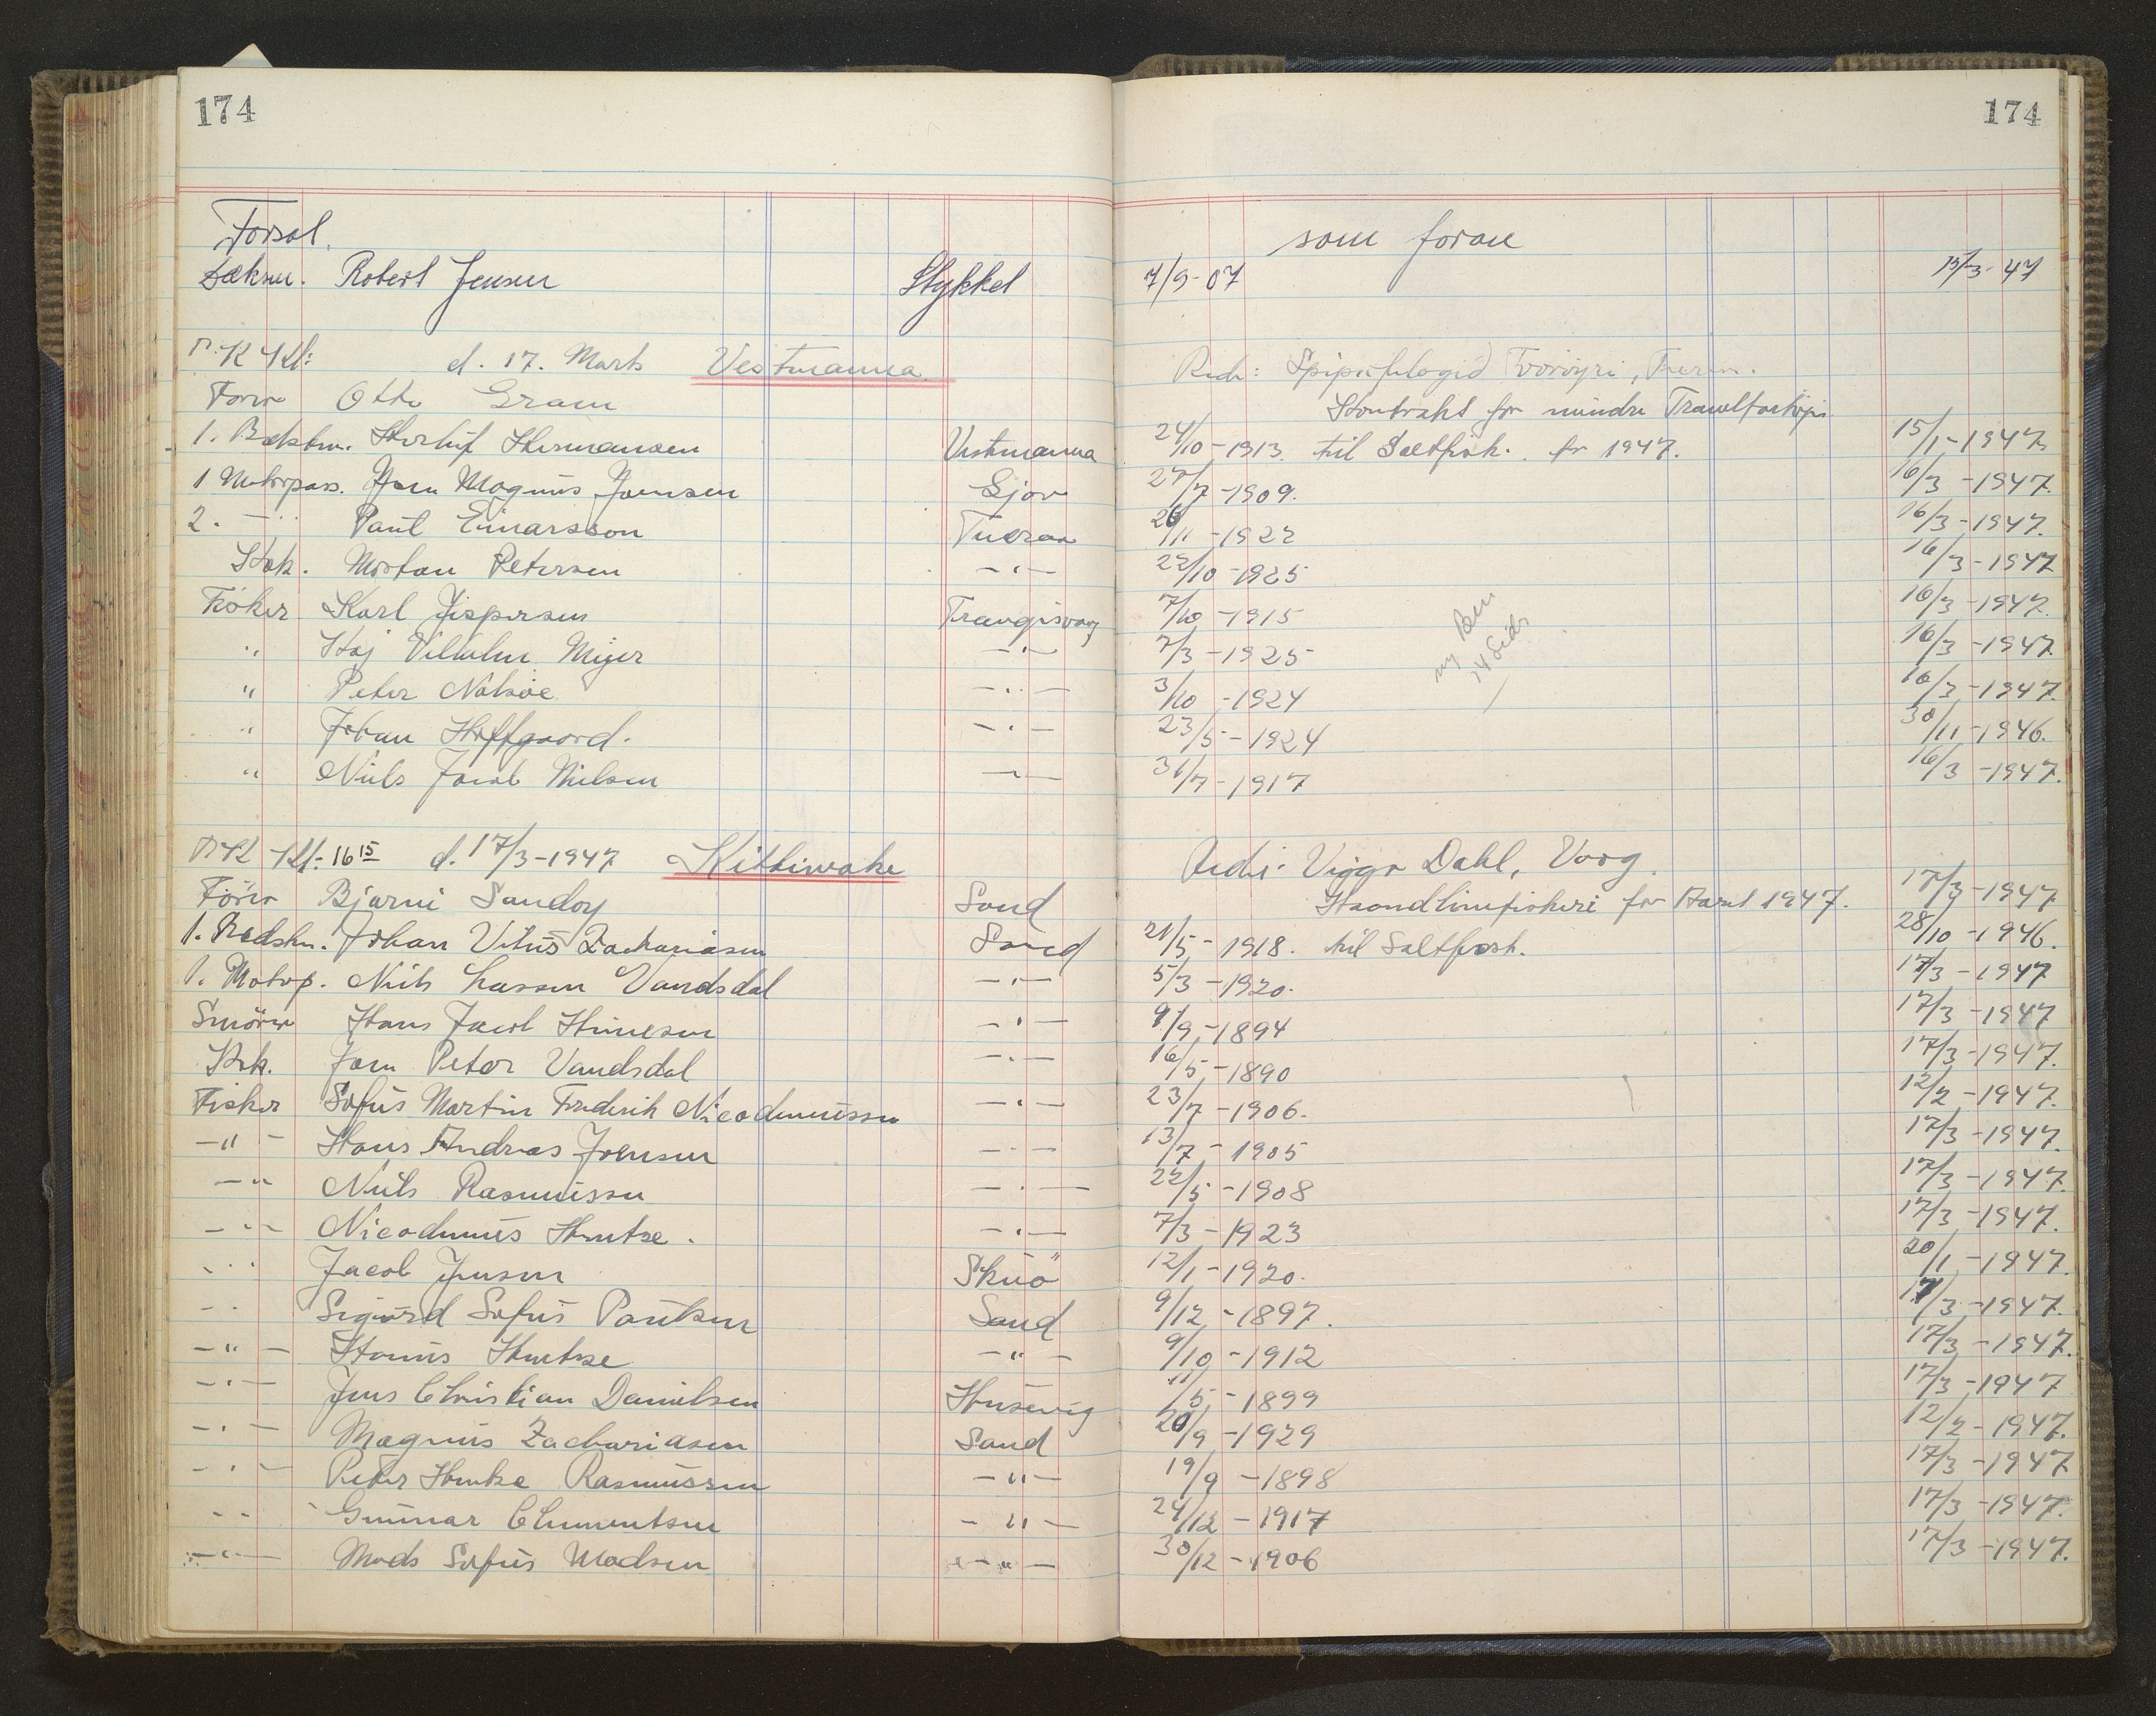 174
174
Forsat. som foran
Dæksm. Robert Jensen Stykket 7/9-07 15/3-47
d. 17. Marts Vestmanna Tvöröyri,
Förer Otto Gram Kontrakt for mindre
1. Bedstm. Herluf Hermansen Vestmanna 24/10-1913. til Saltfisk. for 1947. 15/1-1947
1 Motorpass. Joen Magnus Joensen Gjov 27/7-1909. 16/3-1947.
2. -"- Paul Einarsson Tveraa 26/11-1922 16/3-1947.
Kok. Mortan Petersen -"- 22/10-1925 16/3-1947
Fisker Karl Jespersen Trangisvaag 7/10-1915 16/3-1947.
" Kaj Vilhelm Mejer -"- 7/3-1925 16/3-1947
" Peter Nolsøe -"- 3/10-1924 16/3-1947.
" Johan Hoffgaard. -"- 23/5-1924 30/11-1946.
" Niels Jacob Nielsen -"- 31/7-1917 16/3-1947.
Kl. 16 15 d. 17/3-1947 Kittiwake Viggo Dahl, Vaag.
Förer Bjarni Sandoy Sand Haandlinefiskeri for Aaret 1947. 17/3-1947
1. Bedstm. Johan Vitus Zachariasen Sand 21/5-1918. til Saltfisk. 28/10-1946.
1. Motop. Niels Lassen Vandsdal -"- 5/3-1920. 17/3-1947
Smörer Hans Jacob -"- 9/9-1894 17/3-1947
Kok. Joen Peter Vandsdal -"- 16/5-1890 17/3-1947.
Fisker Sofus Martin Frederik Nicodemussen -"- 23/7-1906. 12/2-1947.
-"- Hans Andreas Joensen -"- 13/7-1905 17/3-1947.
-"- Niels Rasmussen -"- 22/5-1908 17/3-1947.
-"- Nicodemus Hentze. -"- 7/3-1923 17/3-1947.
-"- Jacob Jensen Skuö 12/1-1920. 20/1-1947.
-"- Sigurd Sofus Poulsen Sand 9/12-1897. 17/3-1947.
-"- Hanus Hentze -"- 9/10-1912 17/3-1947.
-"- Jens Christian Danielsen Husevig 11/5-1899 17/3-1947
-"- Magnus Zachariasen Sand 20/9-1929 12/2-1947.
-"- Peter Hentze Rasmussen -"- 19/9-1898 17/3-1947
-"- Gunnar Clementsen -"- 24/12-1917 17/3-1947.
-"- Mads Sofus Madsen -"- 30/12-1906 17/3-1947.